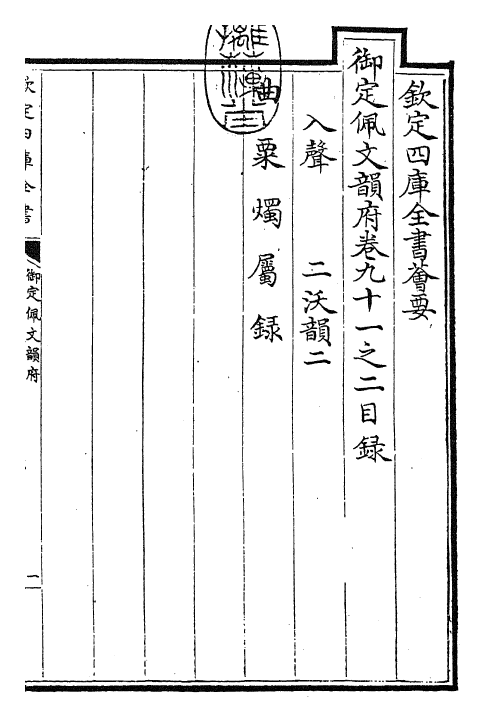 欽定四庫全書薈要
御定佩文韻府卷九十一之二目録
入聲 二沃韻二
曲 粟 燭 屬 録
欽定四庫全書 御定佩文韻府 一